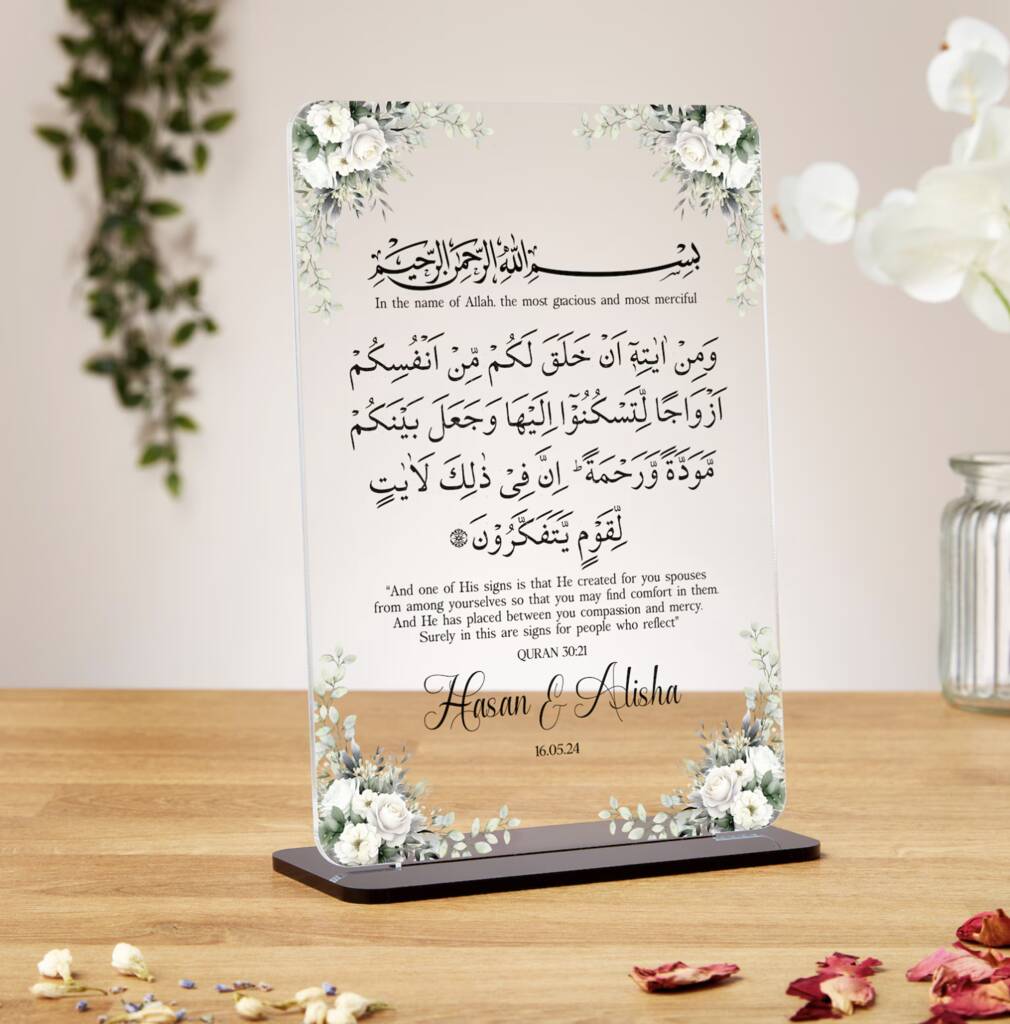 بِسْمِ اللهِ الرَّحْمٰنِ الرَّحِيْمِ
In the name of Allah. the most gracious and most merciful
وَمِنْ اٰيٰتِهٖٓ اَنْ خَلَقَ لَكُمْ مِّنْ اَنْفُسِكُمْ
اَزْوَاجًا لِّتَسْكُنُوْٓا اِلَيْهَا وَجَعَلَ بَيْنَكُمْ
مَّوَدَّةً وَّرَحْمَةً ؕ اِنَّ فِيْ ذٰلِكَ لَاٰيٰتٍ
لِّقَوْمٍ يَّتَفَكَّرُوْنَ۝
"And one of His signs is that He created for you spouses
from among yourselves so that you may find comfort in them.
And He has placed between you compassion and mercy.
Surely in this are signs for people who reflect"
QURAN 30:21
Hasan & Alisha
16.05.24